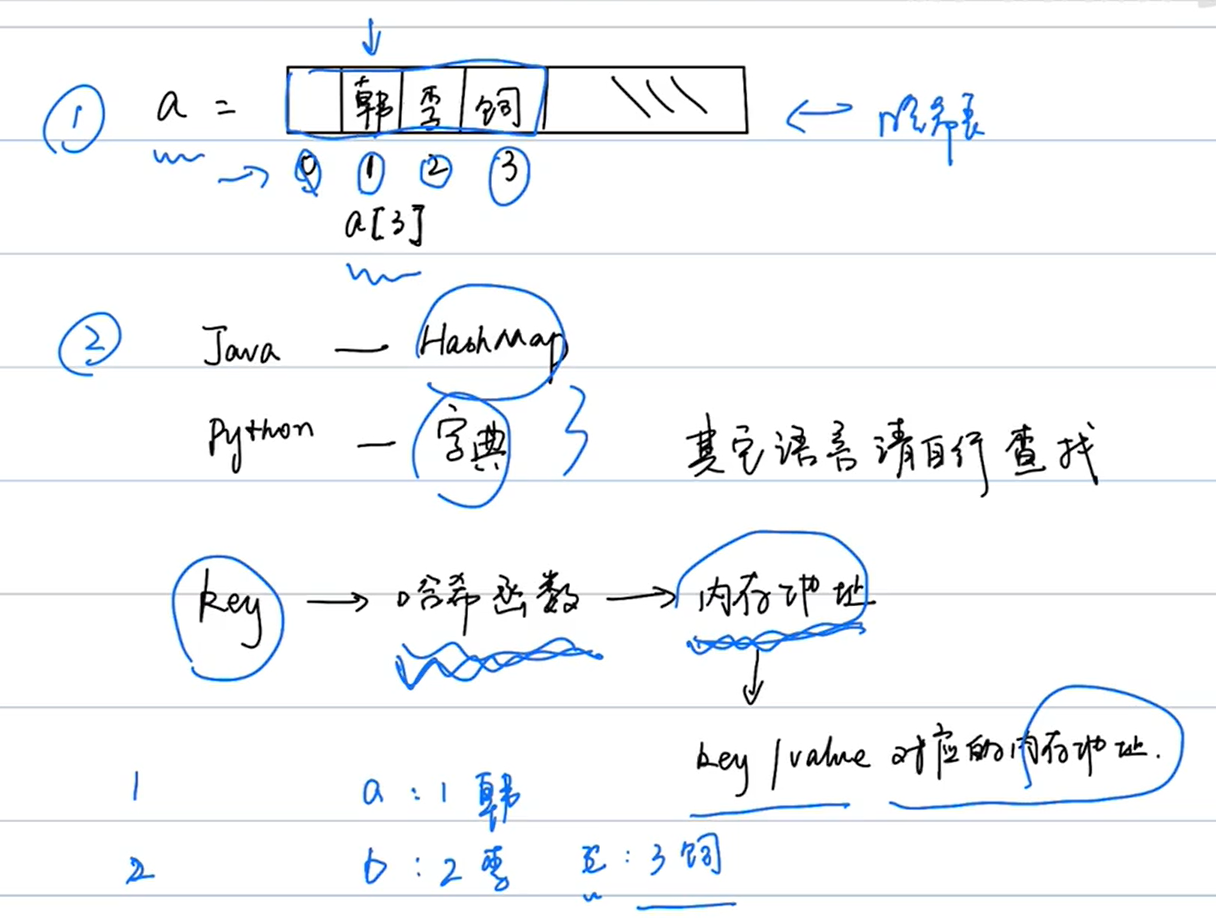 ① a = 韩 李 饲 ← 哈希表
→ 0 1 2 3
a[3]
② Java — HashMap
Python — 字典 } 其它语言请自行查找
key → 哈希函数 → 内存地址
↓
key / value 对应的内存地址.
1 a : 1 韩
2 b : 2 李 : 3 饲